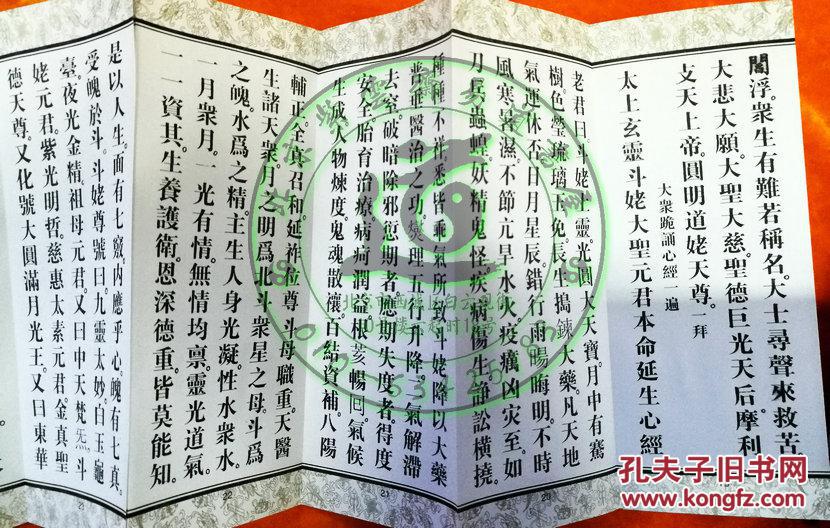 閻浮。衆生有難若稱名。大士尋聲來救苦
大悲大願。大聖大慈。聖德巨光天后。摩利
支天上帝。圓明道姥天尊。一拜
大衆跪誦心經一遍
太上玄靈斗姥大聖元君本命延生心經
老君曰。斗姥上靈光圓大天寶月。中有騫
樹。色瑩琉璃。玉兔長生搗鍊大藥。凡天地
氣運休否。日月星辰錯行。雨暘晦明。不時
風寒暑濕。不節亢旱水火疫癘凶灾至。如
刀兵蟲蝗。妖精鬼怪。疾病傷生。諍訟橫撓。
種種不祥。悉皆乖氣所致。斗姥降以大藥
普垂醫治之功。燮理五行。升降二氣。解滯
去窒。破暗除邪。愆期者。應期失度者。得度
安全胎育治療病疴。潤益根荄。暢回氣候
生成人物煉度鬼魂散禳。百結資補八陽
輔正全真。召和延祚。位尊斗母。職重天醫
生諸天衆月之明。爲北斗衆星之母。斗爲
之魄。水爲之精。主生人身光凝性水衆水。
一月衆月。一光有情無情均禀靈光道氣
一一資其生養護衛。恩深德重。皆莫能知。
是以人生。面有七竅內應乎心。魄有七真。
受魄於斗。斗姥尊號曰。九靈太妙。白玉龜
臺。夜光金精。祖母元君。又曰中天梵炁。斗
姥元君。紫光明哲。慈惠太素元君。金真聖
德天尊。又化號大圓滿月光王。又曰東華
20
21
22
21
孔夫子旧书网
www.kongfz.com